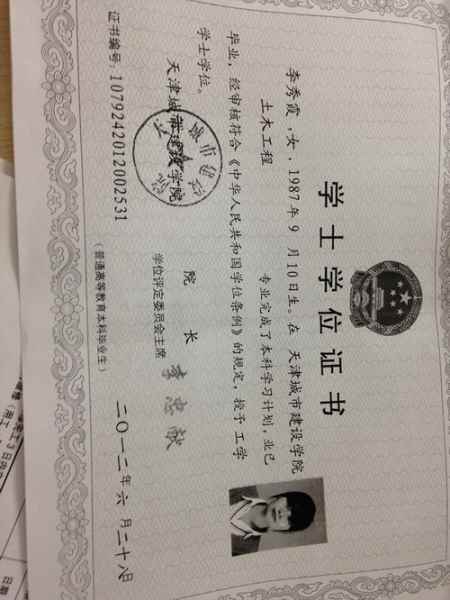 学士学位证书
李秀霞,女,1987年 9 月10日生。在 天津城市建设学院
土木工程 专业完成了本科学习计划,业已
毕业,经审核符合《中华人民共和国学位条例》的规定,授予 工学
学士学位。
天津城市建设学院
院 长
学位评定委员会主席
李忠献
证书编号: 1079242012002531
二〇一二年 六 月二十八日
(普通高等教育本科毕业生)